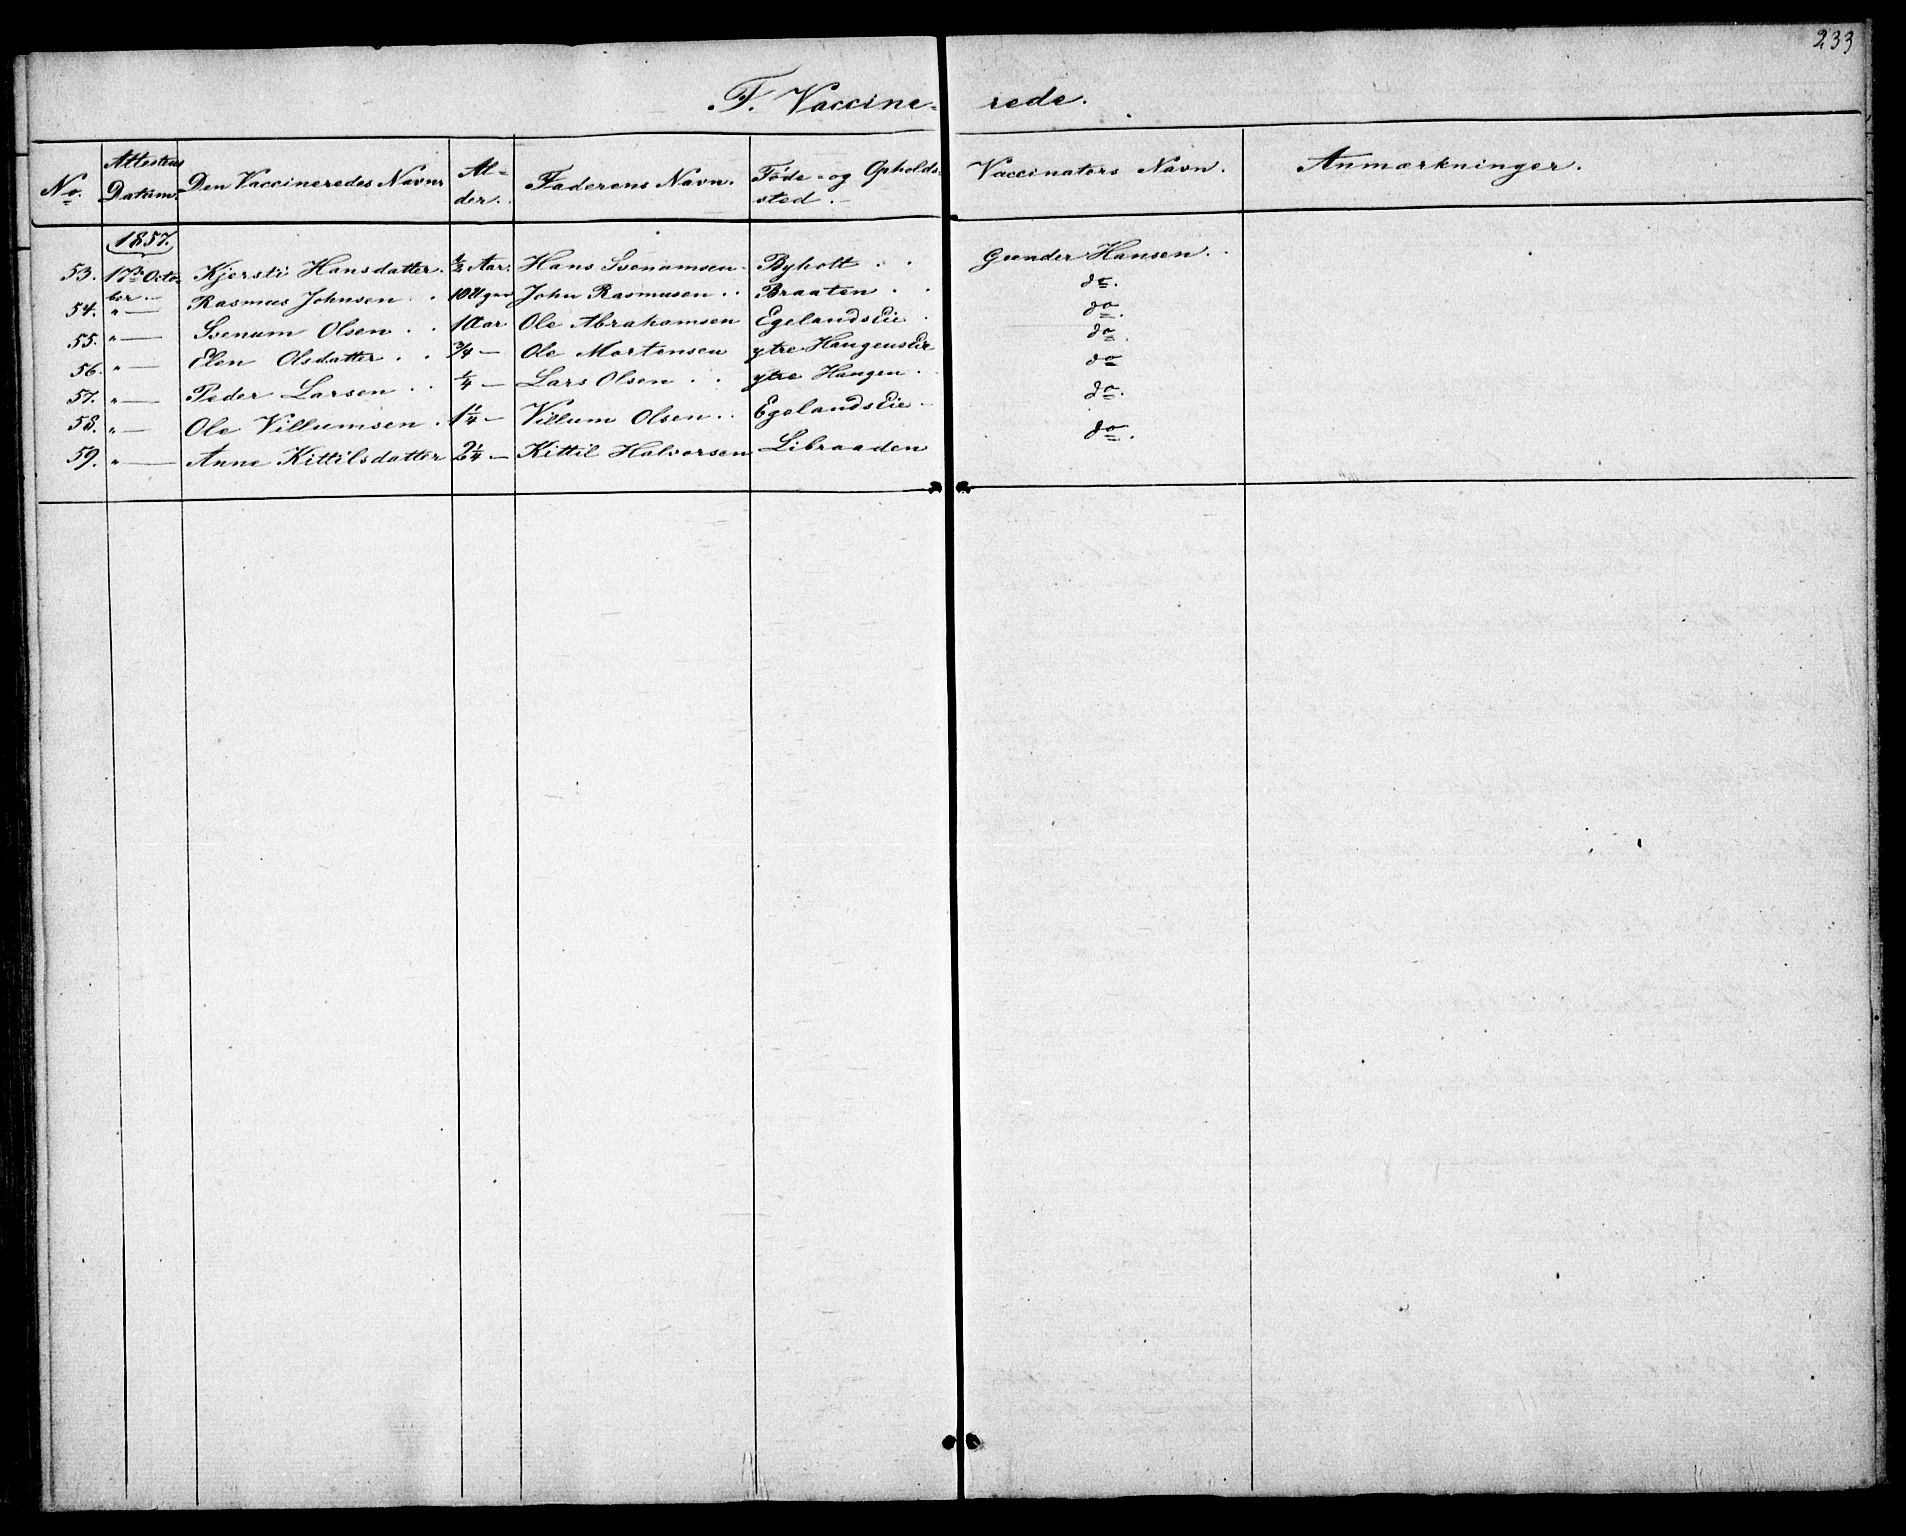 233
F. Vaccine- rede.
No. Attestens Datum. Den Vaccineredes Navn. Al-der. Faderens Navn. Føde- og Opholds-sted. Vaccinators Navn. Anmærkninger.
1857.
53. 17de Octo-ber. Kjersti Hansdatter. ½ Aar. Hans Svenumsen. Byholt Gunder Hansen.
54. " — Rasmus Johnsen 10 Uger John Rasmusen Braaten do.
55. " — Svenum Olsen 1 Aar Ole Abrahamsen Egelands Eie do.
56. " — Elen Olsdatter ¾ — Ole Mortensen ytre Haugens Eie do.
57. " — Peder Larsen ¼ — Lars Olsen ytre Haugen do
58. " — Ole Villumsen 1¼ — Villum Olsen Egelands Eie do.
59. " — Anne Kittilsdatter 2¼ — Kittil Halvorsen Libraaden do.